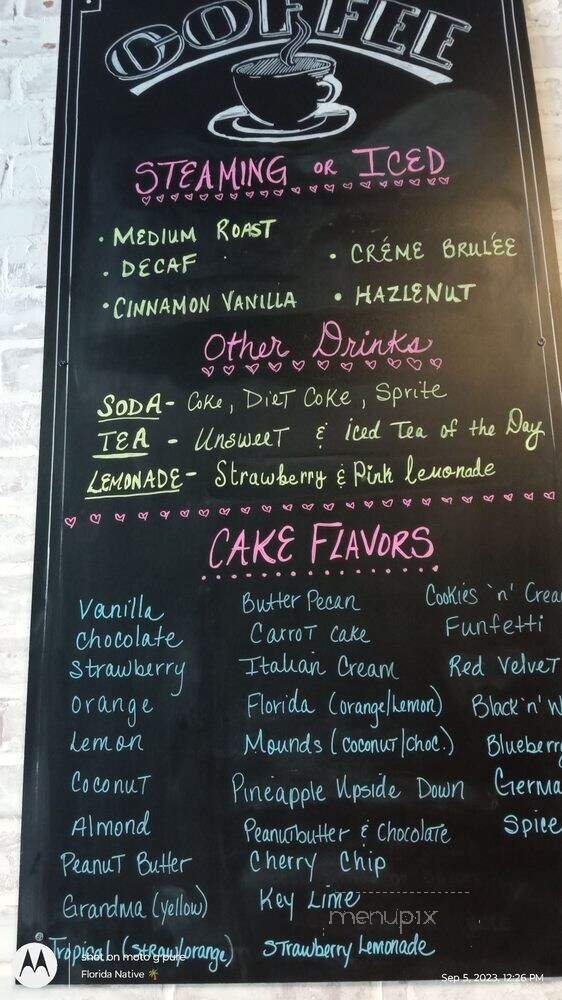 COFFEE
STEAMING OR ICED
• MEDIUM ROAST
• DECAF
• CRÉME BRULÉE
• CINNAMON VANILLA
• HAZLENUT
Other Drinks
SODA - Coke, Diet Coke, Sprite
TEA - Unsweet & Iced Tea of the Day
LEMONADE - Strawberry & Pink lemonade
CAKE FLAVORS
Vanilla Butter Pecan Cookies 'n'
Chocolate Carrot Cake Funfetti
Strawberry Italian Cream Red Velvet
Orange Florida (orange/Lemon) Black 'n'
Lemon Mounds (coconut/choc.) Blueberry
Coconut Pineapple Upside Down
Almond Peanutbutter & Chocolate Spice
Peanut Butter Cherry Chip
Grandma (yellow) Key Lime
Tropical (straw/orange) Strawberry Lemonade
menupix
shot on moto g pure
Florida Native 🌴
Sep 5, 2023, 12:26 PM